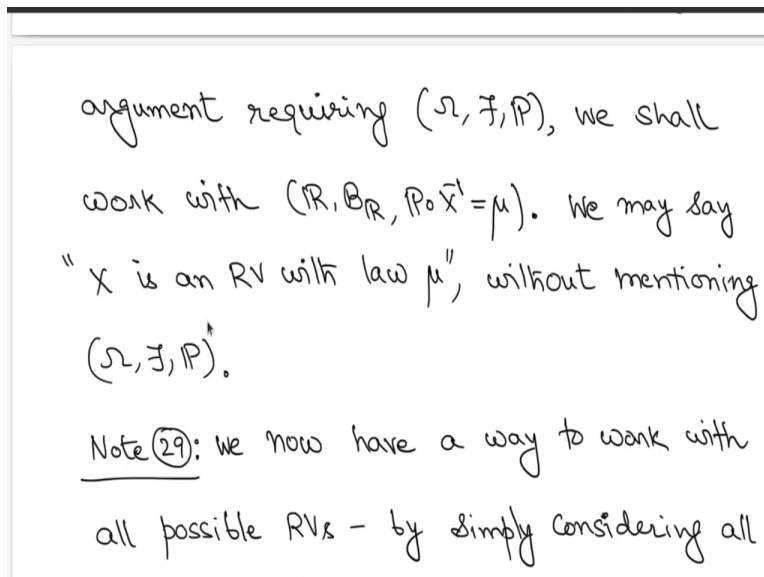 argument requiring (Ω, ℱ, ℙ), we shall
work with (ℝ, 𝔹_ℝ, ℙ∘X⁻¹ = μ). We may say
"X is an RV with law μ", without mentioning
(Ω, ℱ, ℙ).
Note 29: We now have a way to work with
all possible RVs - by simply considering all